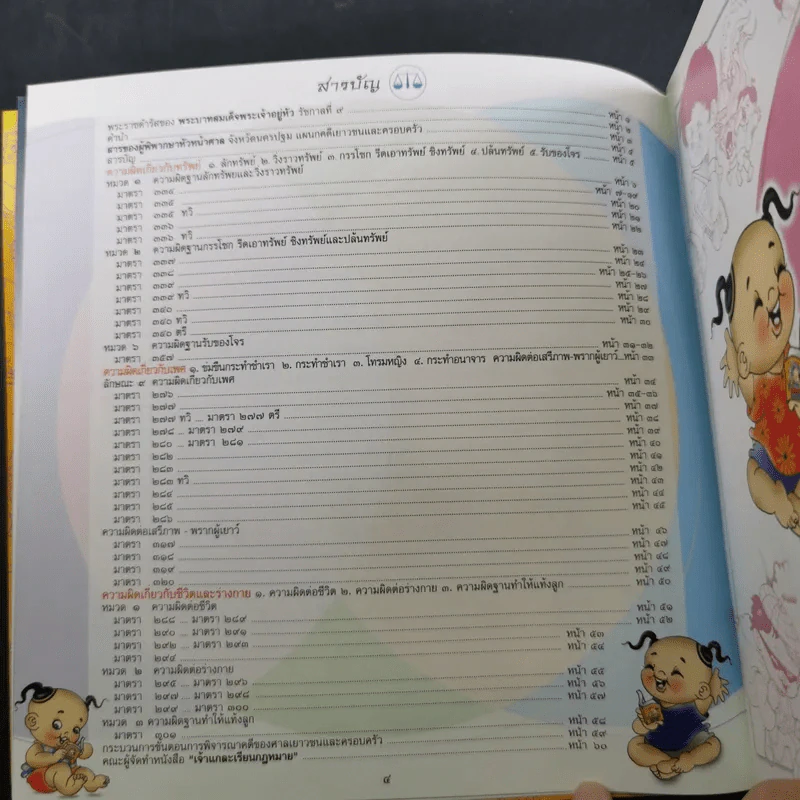 สารบัญ
พระราชดำรัสของ พระบาทสมเด็จพระเจ้าอยู่หัว รัชกาลที่ ๙ หน้า ๑
คำนำ หน้า ๒
สารของผู้พิพากษาหัวหน้าศาล จังหวัดนครปฐม แผนกคดีเยาวชนและครอบครัว หน้า ๓
สารบัญ หน้า ๔
ความผิดเกี่ยวกับทรัพย์ ๑. ลักทรัพย์ ๒. วิ่งราวทรัพย์ ๓. กรรโชก รีดเอาทรัพย์ ชิงทรัพย์ ๔. ปล้นทรัพย์ ๕. รับของโจร หน้า ๕
หมวด ๑ ความผิดฐานลักทรัพย์และวิ่งราวทรัพย์
มาตรา ๓๓๔ หน้า ๖
มาตรา ๓๓๕ หน้า ๗-๑๙
มาตรา ๓๓๕ ทวิ หน้า ๒๐
มาตรา ๓๓๖ หน้า ๒๑
มาตรา ๓๓๖ ทวิ หน้า ๒๒
หมวด ๒ ความผิดฐานกรรโชก รีดเอาทรัพย์ ชิงทรัพย์และปล้นทรัพย์
มาตรา ๓๓๗ หน้า ๒๓
มาตรา ๓๓๘ หน้า ๒๔
มาตรา ๓๓๙ หน้า ๒๕-๒๖
มาตรา ๓๓๙ ทวิ หน้า ๒๗
มาตรา ๓๔๐ หน้า ๒๘
มาตรา ๓๔๐ ทวิ หน้า ๒๙
มาตรา ๓๔๐ ตรี หน้า ๓๐
หมวด ๖ ความผิดฐานรับของโจร
มาตรา ๓๕๗ หน้า ๓๑-๓๒
ความผิดเกี่ยวกับเพศ ๑. ข่มขืนกระทำชำเรา ๒. กระทำชำเรา ๓. โทรมหญิง ๔. กระทำอนาจาร ความผิดต่อเสรีภาพ-พรากผู้เยาว์ หน้า ๓๓
ลักษณะ ๙ ความผิดเกี่ยวกับเพศ
มาตรา ๒๗๖ หน้า ๓๔
มาตรา ๒๗๗ หน้า ๓๕-๓๖
มาตรา ๒๗๗ ทวิ ... มาตรา ๒๗๗ ตรี หน้า ๓๗
มาตรา ๒๗๘ ... มาตรา ๒๗๙ หน้า ๓๘
มาตรา ๒๘๐ ... มาตรา ๒๘๑ หน้า ๓๙
มาตรา ๒๘๒ หน้า ๔๐
มาตรา ๒๘๓ หน้า ๔๑
มาตรา ๒๘๓ ทวิ หน้า ๔๒
มาตรา ๒๘๔ หน้า ๔๓
มาตรา ๒๘๕ หน้า ๔๔
มาตรา ๒๘๖ หน้า ๔๕
ความผิดต่อเสรีภาพ - พรากผู้เยาว์
มาตรา ๓๑๗ หน้า ๔๖
มาตรา ๓๑๘ หน้า ๔๗
มาตรา ๓๑๙ หน้า ๔๘
มาตรา ๓๒๐ หน้า ๔๙
ความผิดเกี่ยวกับชีวิตและร่างกาย ๑. ความผิดต่อชีวิต ๒. ความผิดต่อร่างกาย ๓. ความผิดฐานทำให้แท้งลูก หน้า ๕๐
หมวด ๑ ความผิดต่อชีวิต
มาตรา ๒๘๘ ... มาตรา ๒๘๙ หน้า ๕๑
มาตรา ๒๙๐ ... มาตรา ๒๙๑ หน้า ๕๒
มาตรา ๒๙๒ ... มาตรา ๒๙๓ หน้า ๕๓
มาตรา ๒๙๔ หน้า ๕๔
หมวด ๒ ความผิดต่อร่างกาย
มาตรา ๒๙๕ ... มาตรา ๒๙๖ หน้า ๕๕
มาตรา ๒๙๗ ... มาตรา ๒๙๘ หน้า ๕๖
มาตรา ๒๙๙ ... มาตรา ๓๐๐ หน้า ๕๗
หมวด ๓ ความผิดฐานทำให้แท้งลูก
มาตรา ๓๐๑ หน้า ๕๘
กระบวนการขั้นตอนการพิจารณาคดีของศาลเยาวชนและครอบครัว หน้า ๕๙
คณะผู้จัดทำหนังสือ "เจ้าแกละเรียนกฎหมาย" หน้า ๖๐
๔